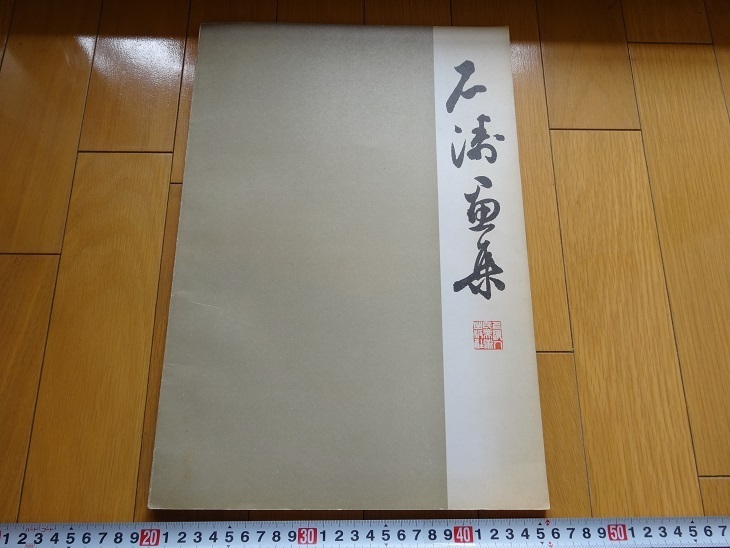 石濤画集
1 2 3 4 5 6 7 8 9 20 1 2 3 4 5 6 7 8 9 30 1 2 3 4 5 6 7 8 9 40 1 2 3 4 5 6 7 8 9 50 1 2 3 4 5 6 7